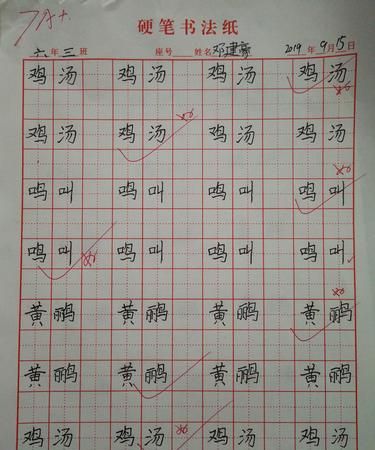 7A+
硬笔书法纸
六年三班 座号 姓名 邓建豪 2019年9月15日
鸡汤 鸡汤 鸡汤 鸡汤
鸡汤 鸡汤 鸡汤 鸡汤
鸣叫 鸣叫 鸣叫 鸣叫
鸣叫 鸣叫 鸣叫 鸣叫
黄鹂 黄鹂 黄鹂 黄鹂
黄鹂 黄鹂 黄鹂 黄鹂
鸡汤 鸡汤 鸡汤 鸡汤